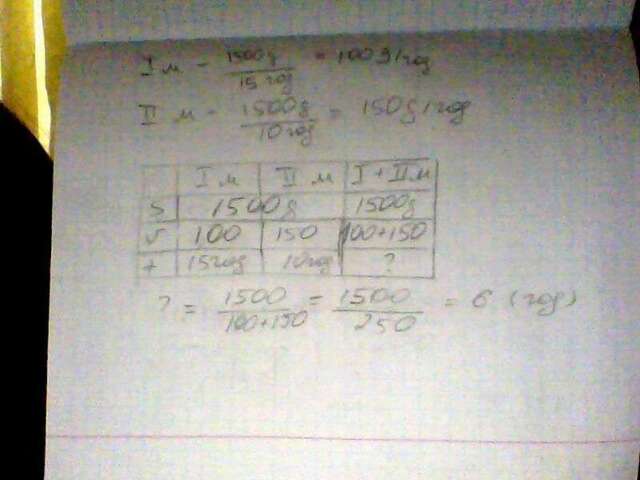 I м - 1500g/15 год = 100g/год
II м - 1500g/10 год = 150g/год
I м II м I + II м
S 1500g 1500g
v 100 150 100+150
t 15год 10год ?
? = 1500/100+150 = 1500/250 = 6 (год)